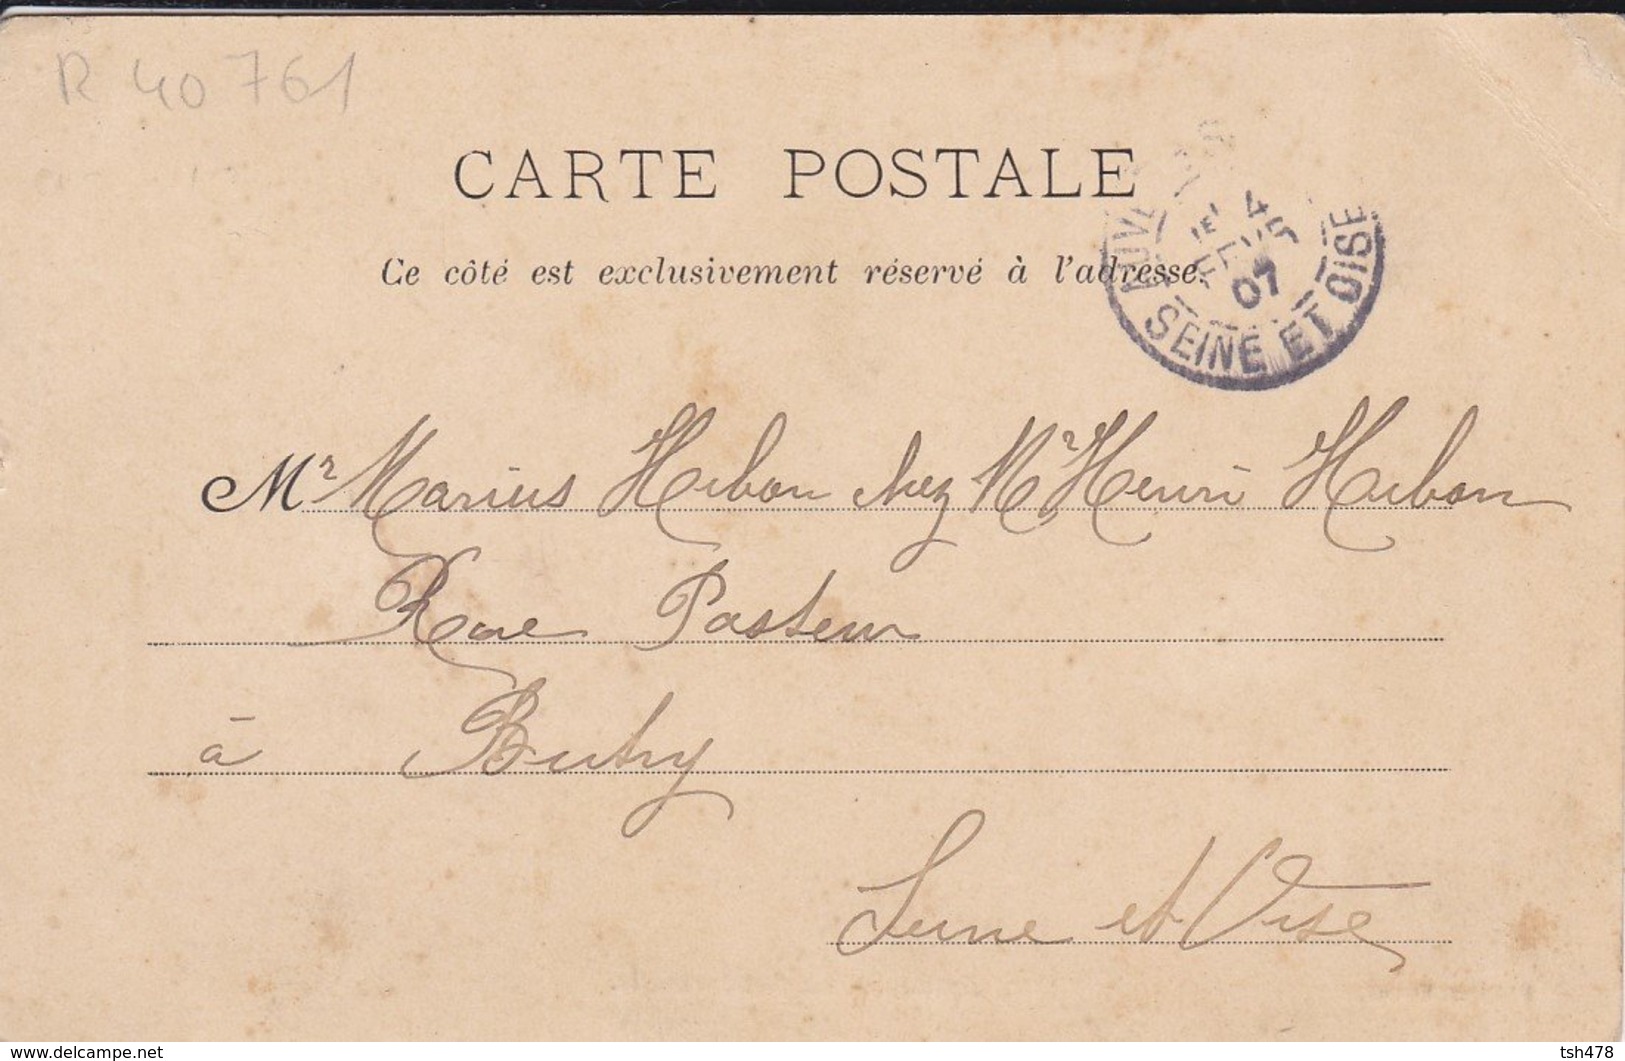 R 40761
CARTE POSTALE
Ce côté est exclusivement réservé à l'adresse.
07
SEINE ET OISE
Mr Marius Hubon chez Mr Henri Hubon
Rue Pasteur
à Butry
Seine et Oise
www.delcampe.net
tsh478